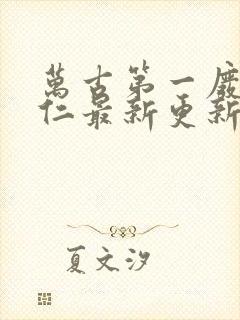 萬古第一廢
仁最新更新
夏文汐